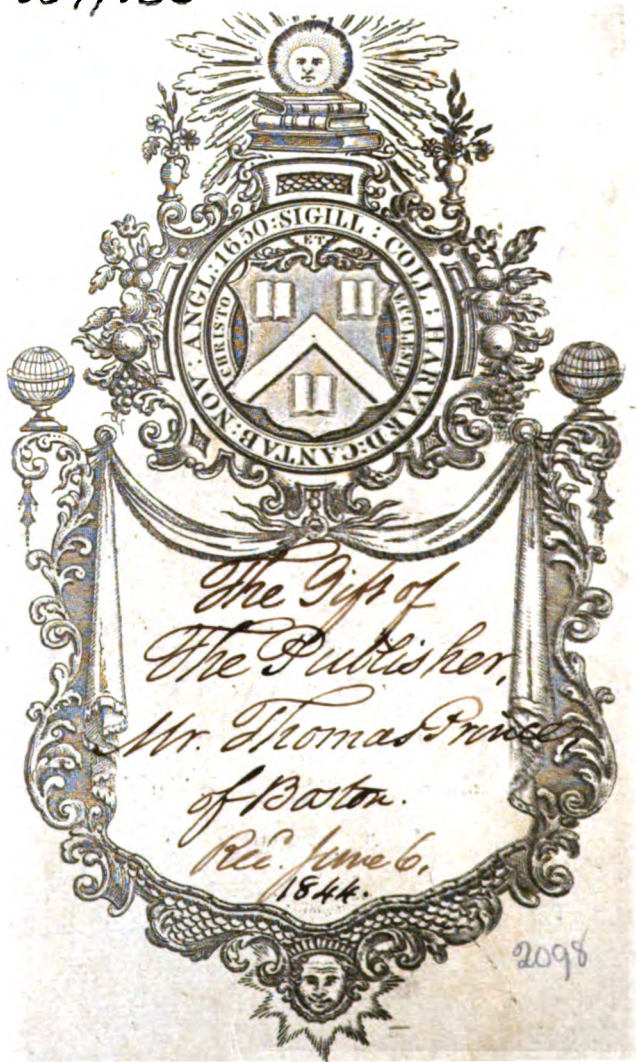 SIGILL : COLL : HARVARD : CANTAB : NOV : ANGL : 1650 :
CHRISTO
ET
ECCLESIÆ
The Gift of
The Publisher,
Mr. Thomas Prince,
of Boston.
Rec. June 6,
1844.
2098